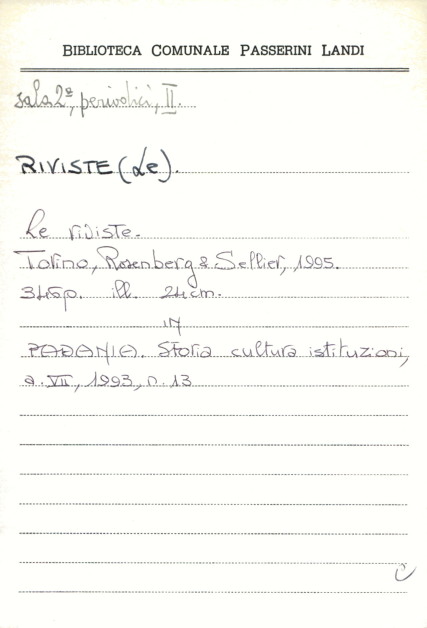 BIBLIOTECA COMUNALE PASSERINI LANDI
sala 2ª, periodici, II.
RIVISTE (Le).
Le riviste.
Torino, Rosenberg & Sellier, 1995.
346p. ill. 24cm.
IN
PADANIA. Storia cultura istituzioni,
a. VII, 1993, n. 13